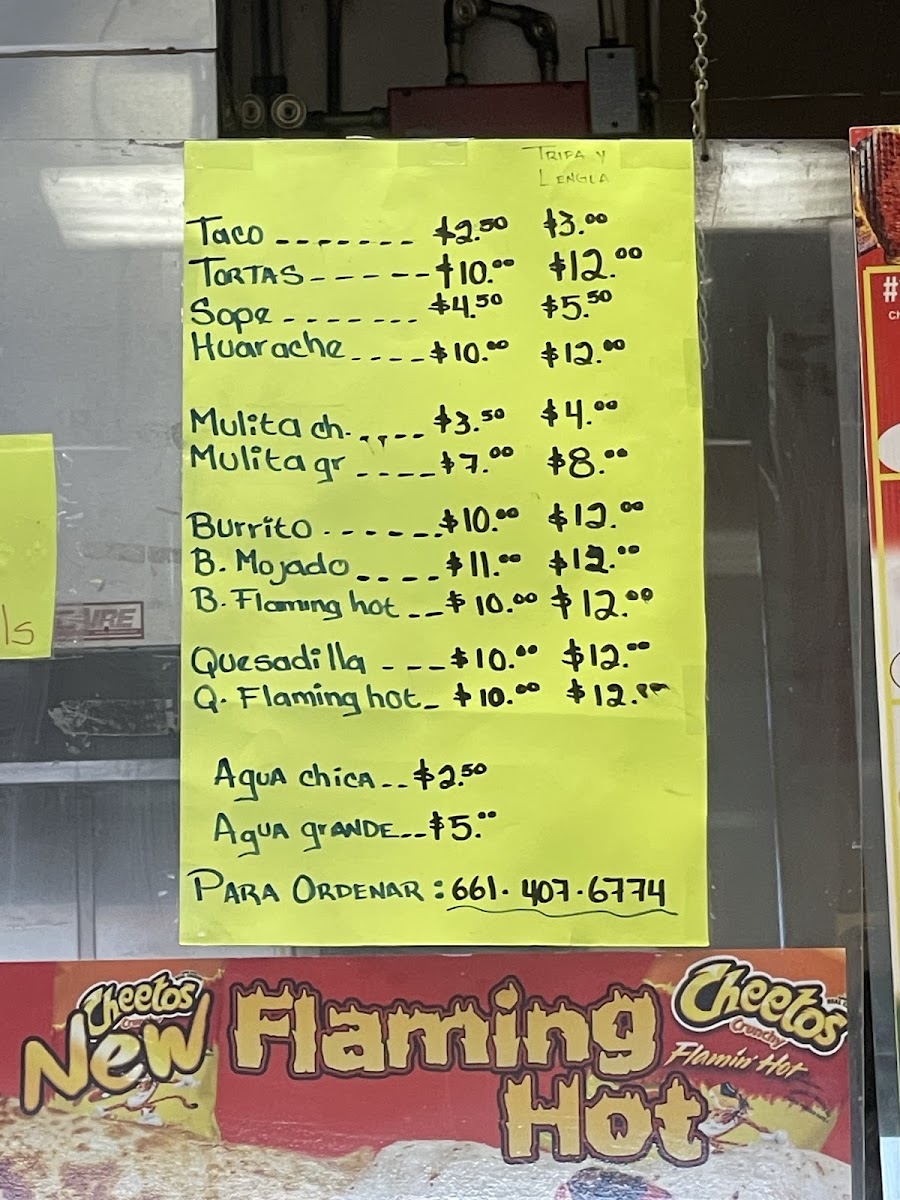 TRIPA Y
LENGUA
Taco ------- $2.50 $3.00
TORTAS ----- $10.00 $12.00
Sope ------- $4.50 $5.50
Huarache ---- $10.00 $12.00
Mulita ch. ---- $3.50 $4.00
Mulita gr ---- $7.00 $8.00
Burrito ------ $10.00 $12.00
B. Mojado ---- $11.00 $12.00
B. Flaming hot -- $10.00 $12.00
Quesadilla --- $10.00 $12.00
Q. Flaming hot - $10.00 $12.00
AGUA chica -- $2.50
AGUA grANDE -- $5.00
PARA ORDENAR : 661. 407.6774
ls
#
CH
Cheetos
New Flaming Hot
Cheetos
Crunchy
Flamin' Hot